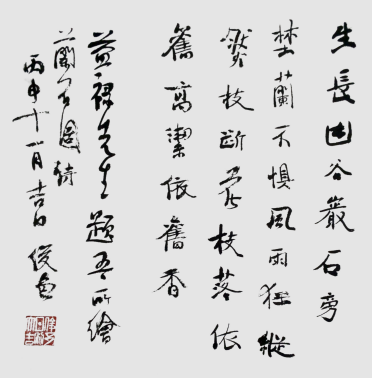 生長幽谷巖石旁
埜蘭不懼風雨狂縱
然枝斷花枝落依
舊高潔依舊香
益禄先生題吾所繪
蘭石圖詩
丙申十一月吉日俊